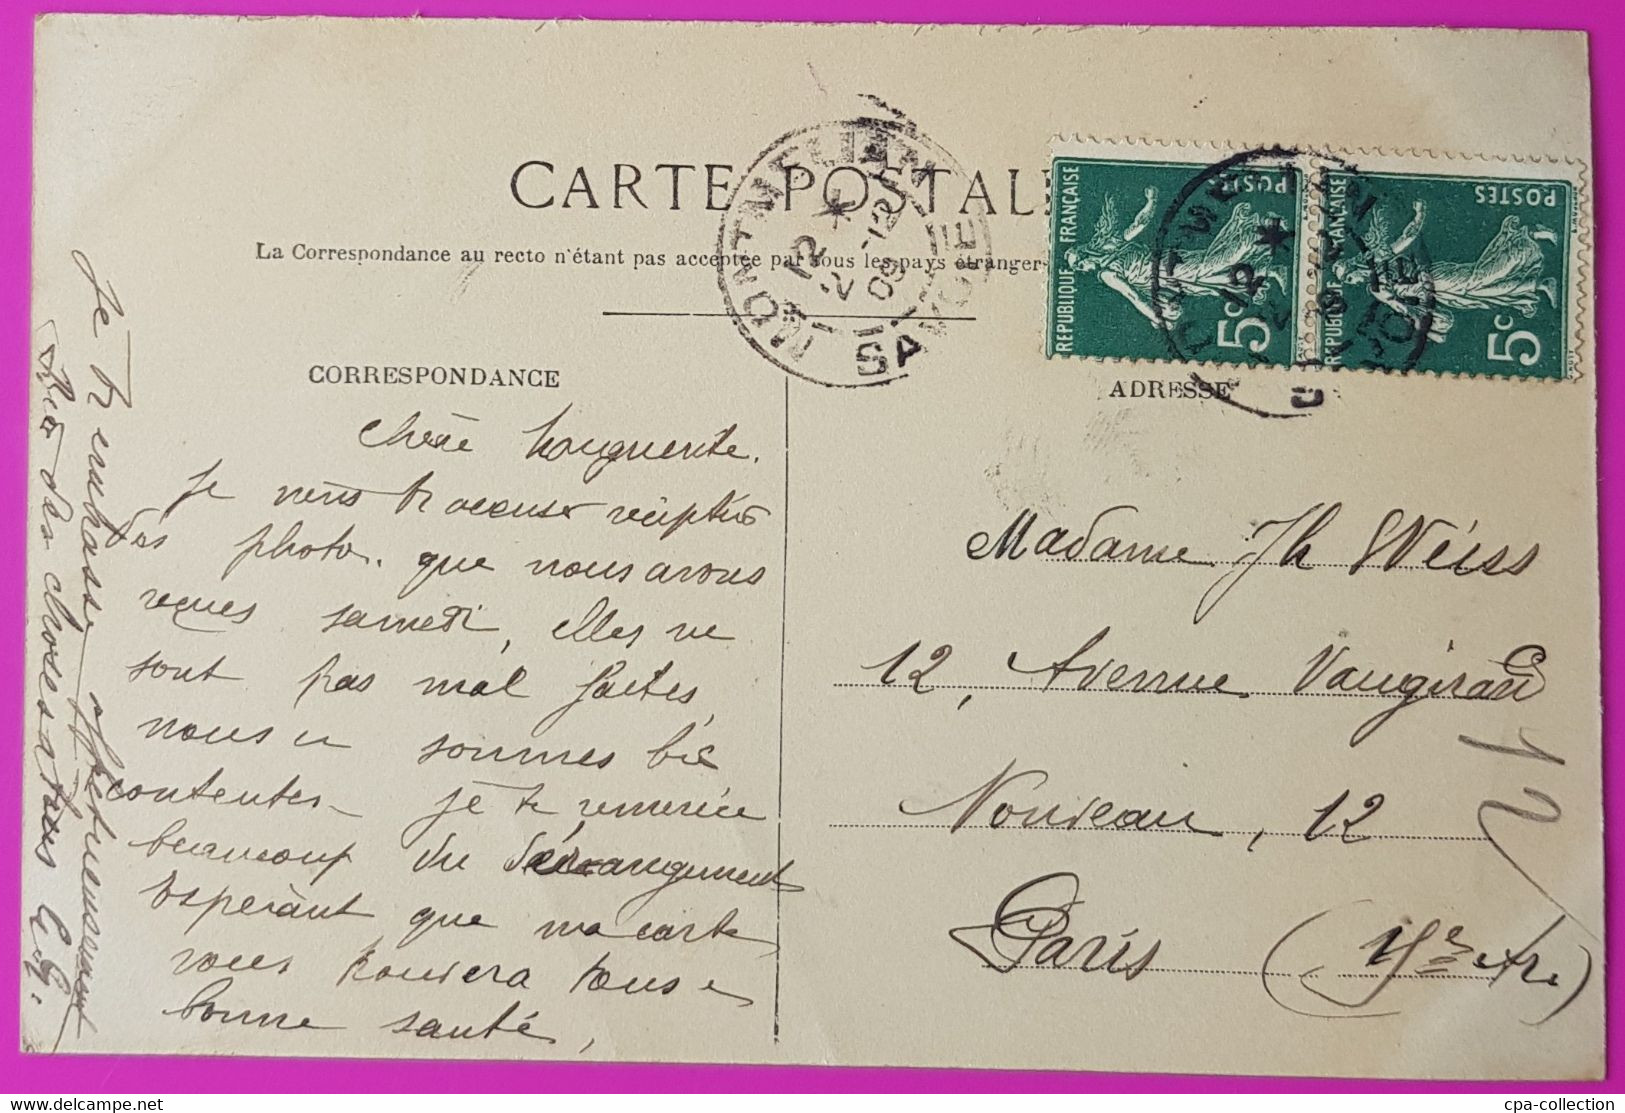 CARTE POSTAL
La Correspondance au recto n'étant pas acceptée par tous les pays étranger
MONTMELIAN
* 
12
2-12
09
SAVOIE
REPUBLIQUE FRANÇAISE
POSTES
5c
REPUBLIQUE FRANÇAISE
POSTES
5c
CORRESPONDANCE
ADRESSE
Chère Marguerite.
Je viens t'accuser réception
des photo. que nous avons
reçues samedi, elles ne
sont pas mal faites,
nous en sommes bien
contentes - je te remercie
beaucoup du dérangement
Espérant que ma carte
vous trouvera tous en
bonne santé,
Je t'embrasse affectueusement
Bien des choses à tous E. G.
Madame Jh Weiss
12, Avenue Vaugirard
Nouveau, 12
Paris (15e Ar.)
12
cpa-collection